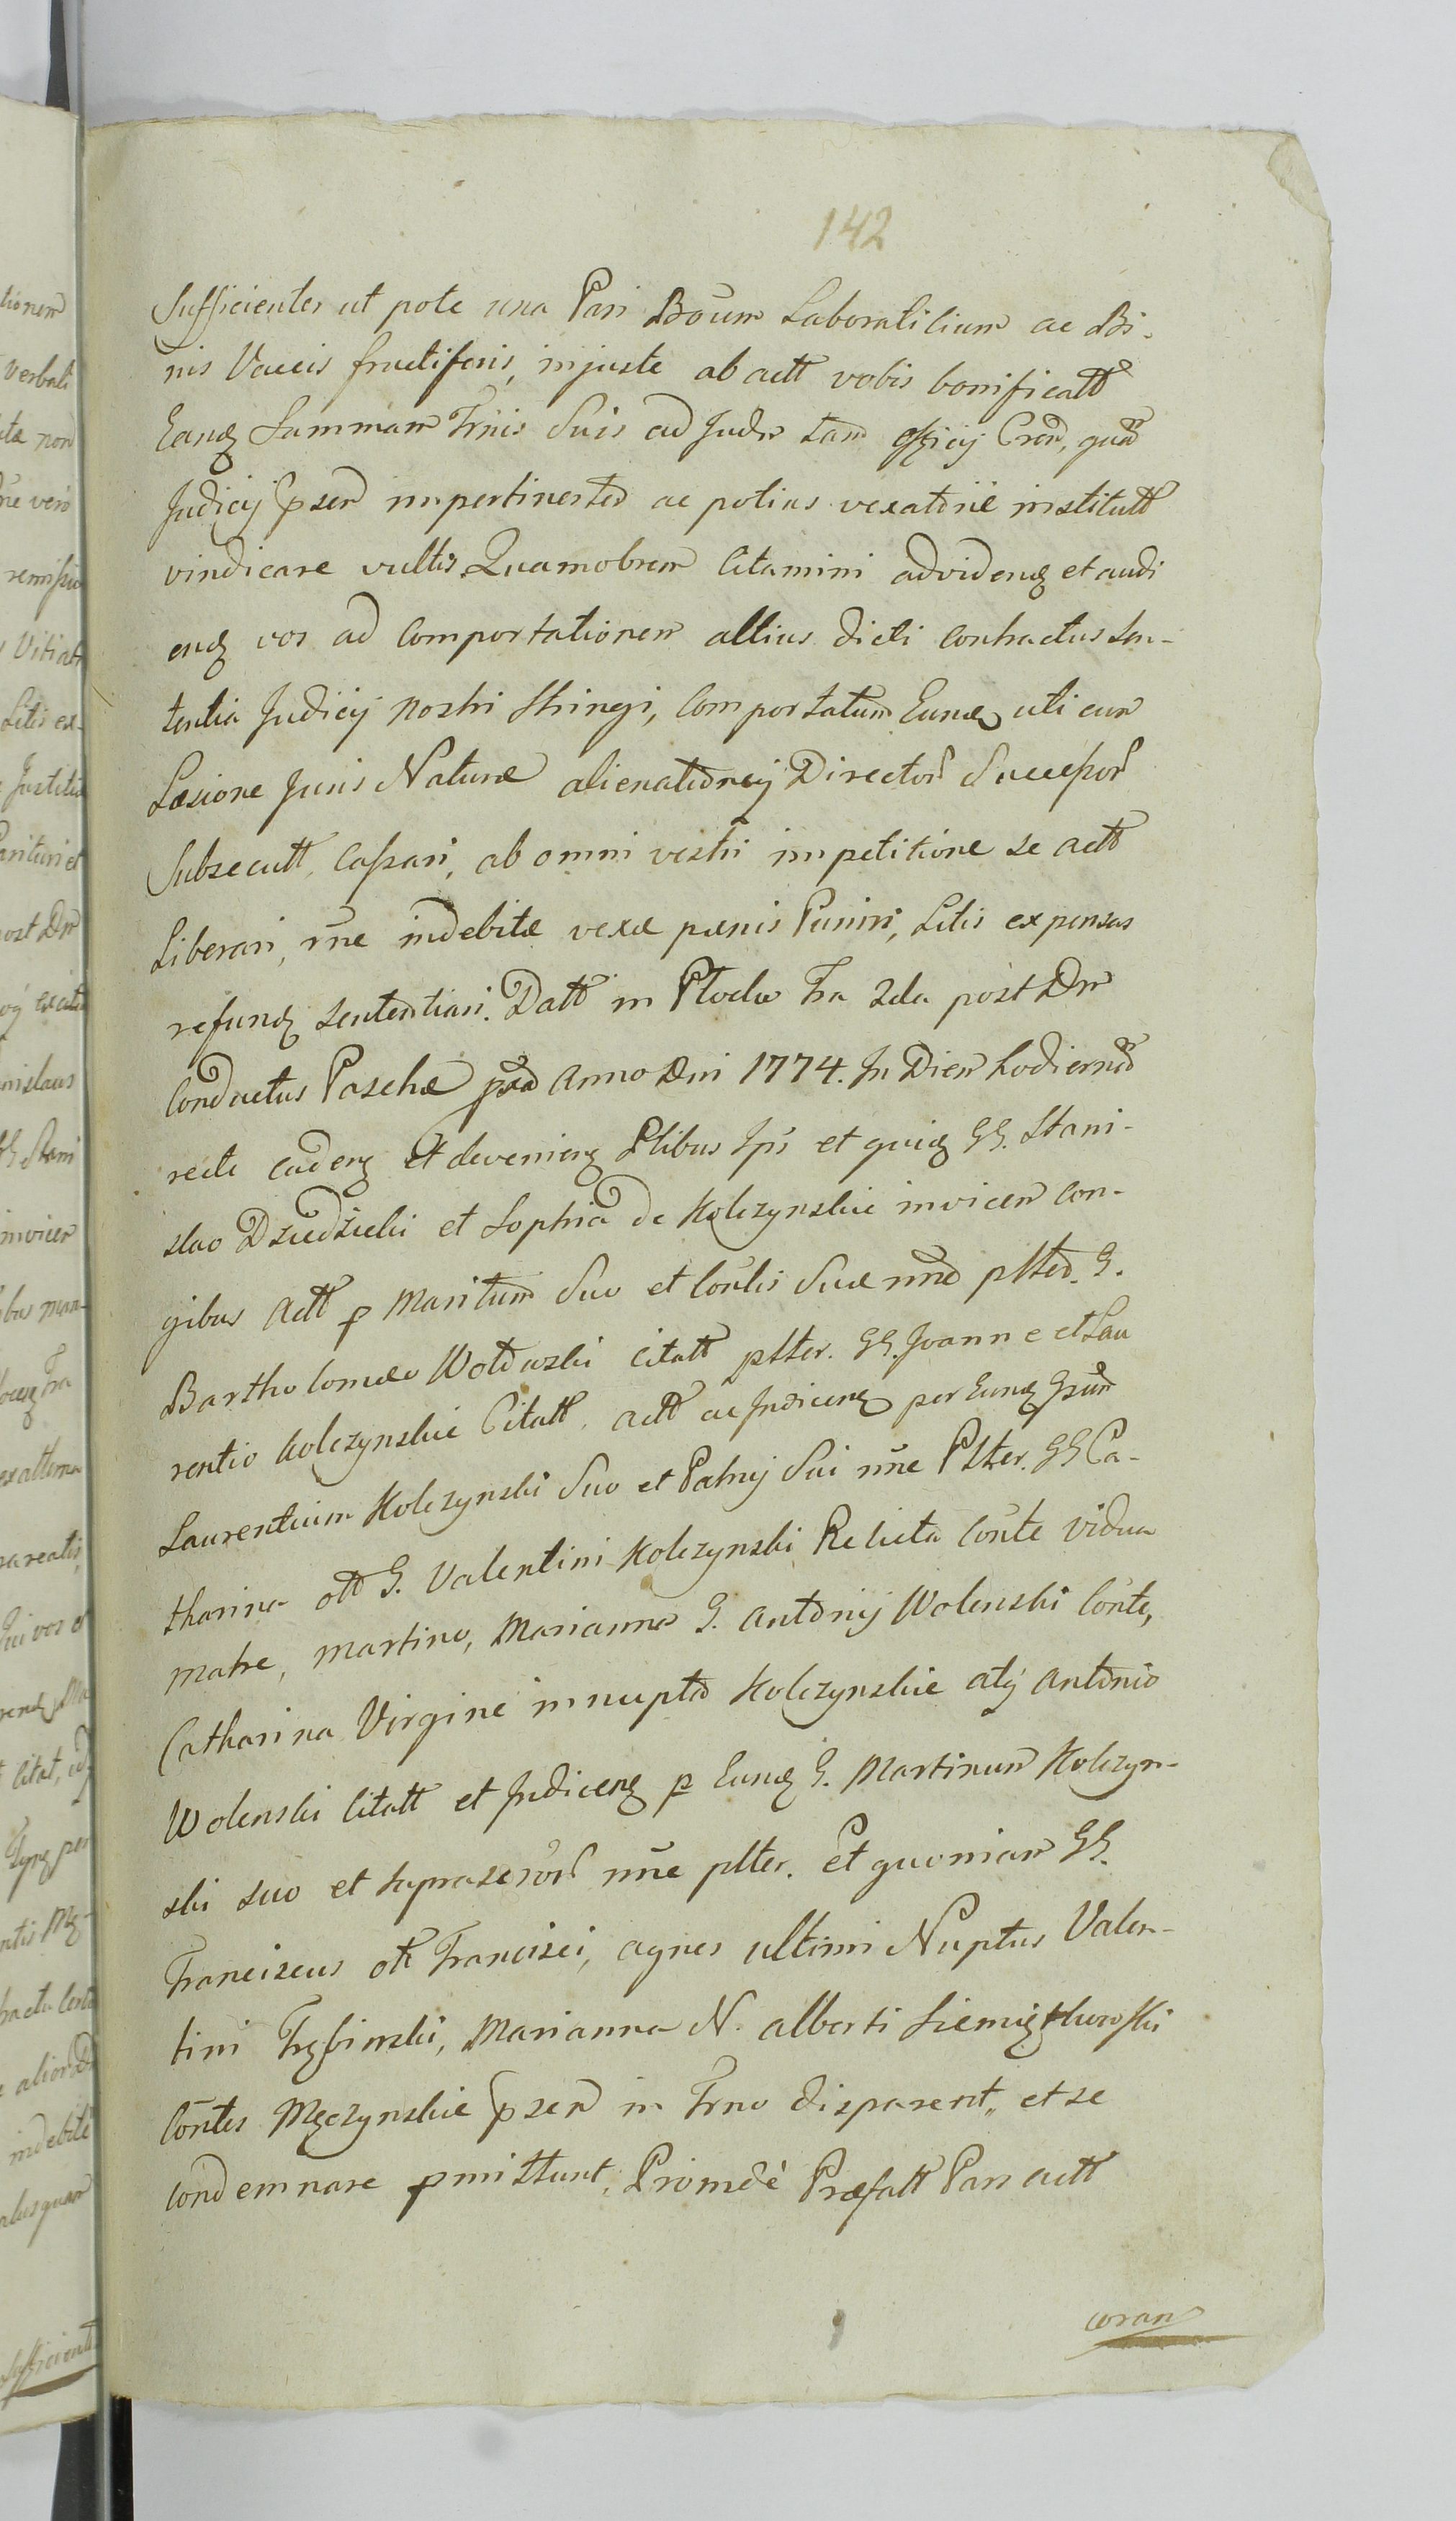 142
Sufficienter ut pote una Pari Boum Laboratilium ac Bi-
nis Vaccis fructiferis, injuste ab actt vobis bonificatt
Eandq Summam Trnis Suis ad Judm tam officij Cren, quam
Judicij psen impertinenter ac potius vexatorie institutt
vindicare vultis. Quamobrem Citamini advidendq et audi
endq vos ad Comportationem altius dicti contractus Sen-
tentia Judicij nostri Stringi, Comportatum Eundq uti cum
Læsione Juris Naturæ alienationij Director Successor
Subsecutt, Cassari, ab omni vestri impetitione se actt
Liberari, rne indebitæ vexæ pænis Puniri, Litis expensas
refundq sententiari. Datt in Plocko fra 2da post Dm
Conductus Paschæ pxa Anno Dni 1774. In Diem hodiernam
recte cadenq et devenienq Ptibus Ipsis et quidq GG. Stani-
slao Dziedzicki et Sophia de Kolczynskie invicem con-
gibus Actt p Maritum Suo et Contis Suæ nne ptter. G.
Bartholomæo Wolowski citatt ptter. GG. Joanne et Lau
rentio Kolczynskie Citatt, actt ac Judicenq per Eundq Gsum
Laurentium Kolczynski Suo et Patruj Sui nne Ptter. GG Ca-
tharina ott G. Valentini Kolczynski Relicta Conte vidua
matre, Martino, Marianna G. Antonij Wolenski Conte,
Catharina Virgine innupta Kolczynskie atq Antonio
Wolenski Citatt et Judicenq p Eundq G. Martinum Kolczyn-
ski suo et supraserior nne ptter. Et quoniam GG.
Franciscus ott Francisci, Agnes ultimi Nuptus Valen-
tini Trębinski, Marianna N. Alberti Siemiątkowski
Contes Męczynskie psen in Trno disparent, et se
condemnare pmittunt, Proinde Præfatt Pars actt
coram